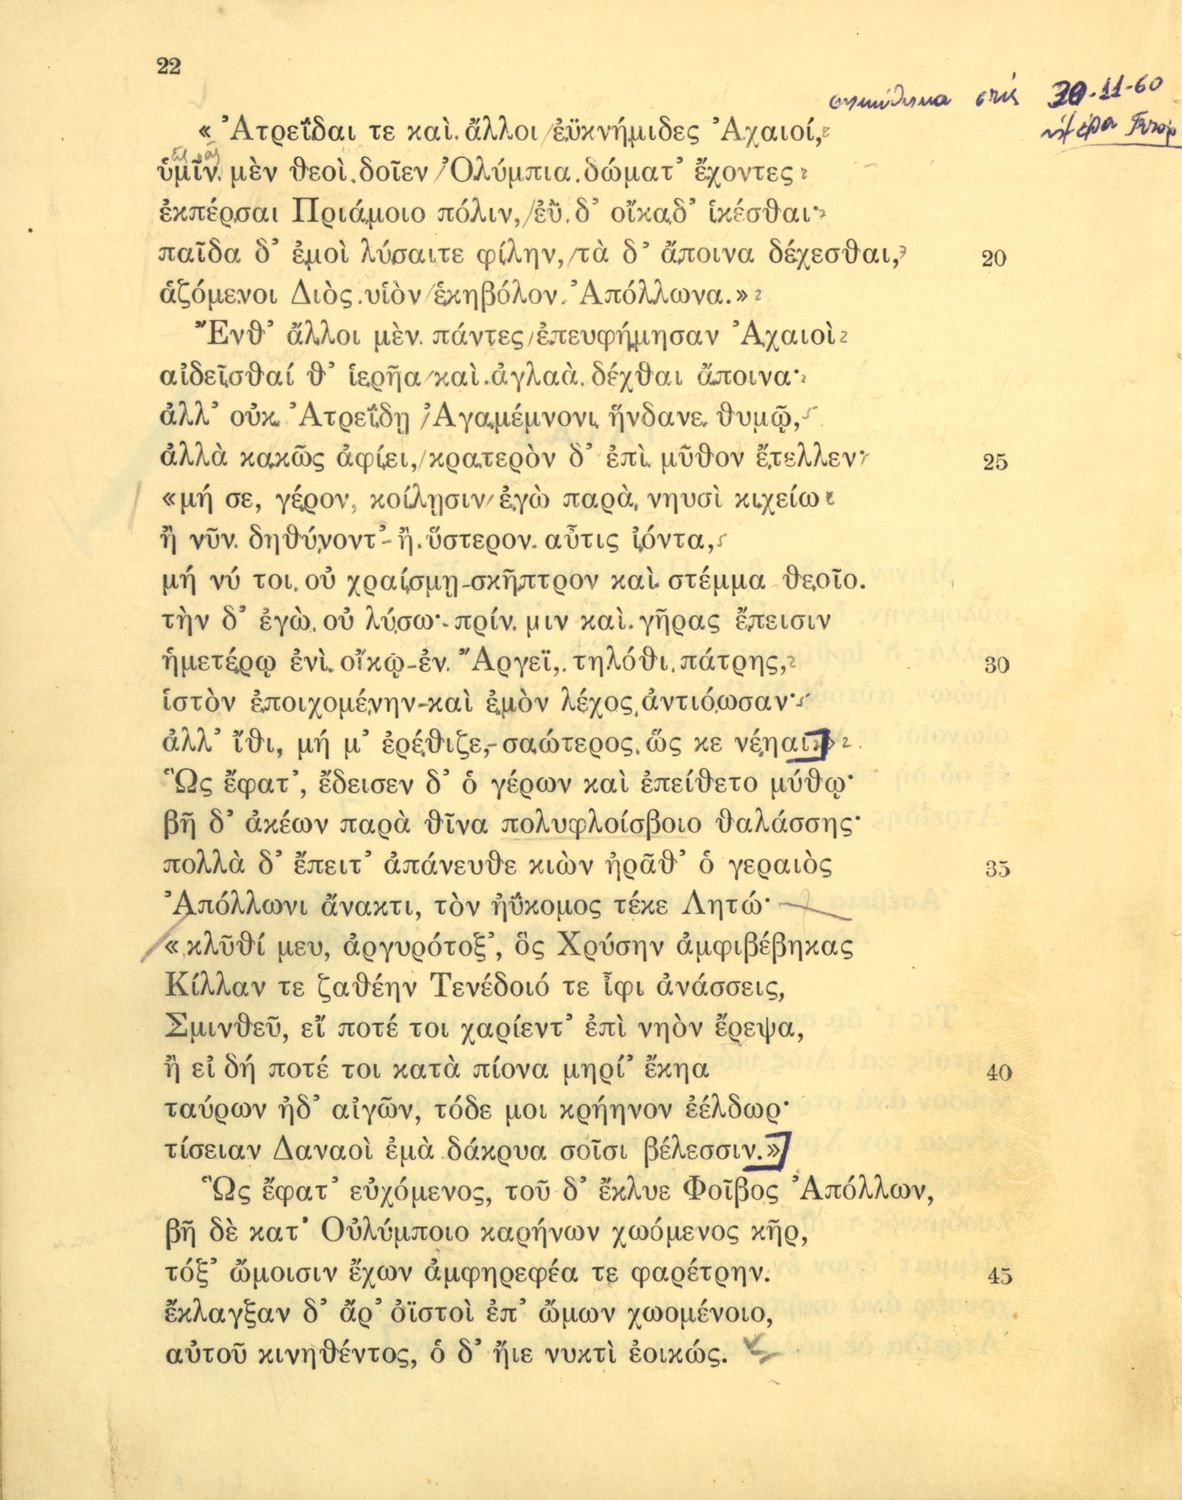 22
σηκώθηκα στίς 30-11-60
« Ἀτρεΐδαι τε καὶ ἄλλοι ἐϋκνήμιδες Ἀχαιοί,
ὑμῖν μὲν θεοὶ δοῖεν Ὀλύμπια δώματ’ ἔχοντες
ἐκπέρσαι Πριάμοιο πόλιν, ἐῢ δ’ οἴκαδ’ ἱκέσθαι·
παῖδα δ’ ἐμοὶ λύσαιτε φίλην, τὰ δ’ ἄποινα δέχεσθαι, 20
ἁζόμενοι Διὸς υἱὸν ἑκηβόλον Ἀπόλλωνα.»
Ἔνθ’ ἄλλοι μὲν πάντες ἐπευφήμησαν Ἀχαιοὶ
αἰδεῖσθαί θ’ ἱερῆα καὶ ἀγλαὰ δέχθαι ἄποινα·
ἀλλ’ οὐκ Ἀτρεΐδῃ Ἀγαμέμνονι ἥνδανε θυμῷ,
ἀλλὰ κακῶς ἀφίει, κρατερὸν δ’ ἐπὶ μῦθον ἔτελλεν· 25
«μή σε, γέρον, κοίλῃσιν ἐγὼ παρὰ νηυσὶ κιχείω
ἢ νῦν δηθύνοντ’ ἢ ὕστερον αὖτις ἰόντα,
μή νύ τοι οὐ χραίσμῃ σκῆπτρον καὶ στέμμα θεοῖο.
τὴν δ’ ἐγὼ οὐ λύσω· πρίν μιν καὶ γῆρας ἔπεισιν
ἡμετέρῳ ἐνὶ οἴκῳ ἐν Ἄργεϊ, τηλόθι πάτρης, 30
ἱστὸν ἐποιχομένην καὶ ἐμὸν λέχος ἀντιόωσαν·
ἀλλ’ ἴθι, μή μ’ ἐρέθιζε, σαώτερος ὥς κε νέηαι.»
Ὣς ἔφατ’, ἔδεισεν δ’ ὁ γέρων καὶ ἐπείθετο μύθῳ·
βῆ δ’ ἀκέων παρὰ θῖνα πολυφλοίσβοιο θαλάσσης·
πολλὰ δ’ ἔπειτ’ ἀπάνευθε κιὼν ἠρᾶθ’ ὁ γεραιὸς 35
Ἀπόλλωνι ἄνακτι, τὸν ἠΰκομος τέκε Λητώ·
«κλῦθί μευ, ἀργυρότοξ’, ὃς Χρύσην ἀμφιβέβηκας
Κίλλαν τε ζαθέην Τενέδοιό τε ἶφι ἀνάσσεις,
Σμινθεῦ, εἴ ποτέ τοι χαρίεντ’ ἐπὶ νηὸν ἔρεψα,
ἢ εἰ δή ποτέ τοι κατὰ πίονα μηρί’ ἔκηα 40
ταύρων ἠδ’ αἰγῶν, τόδε μοι κρήηνον ἐέλδωρ·
τίσειαν Δαναοὶ ἐμὰ δάκρυα σοῖσι βέλεσσιν.»
Ὣς ἔφατ’ εὐχόμενος, τοῦ δ’ ἔκλυε Φοῖβος Ἀπόλλων,
βῆ δὲ κατ’ Οὐλύμποιο καρήνων χωόμενος κῆρ,
τόξ’ ὤμοισιν ἔχων ἀμφηρεφέα τε φαρέτρην. 45
ἔκλαγξαν δ’ ἄρ’ ὀϊστοὶ ἐπ’ ὤμων χωομένοιο,
αὐτοῦ κινηθέντος, ὁ δ’ ἤιε νυκτὶ ἐοικώς.